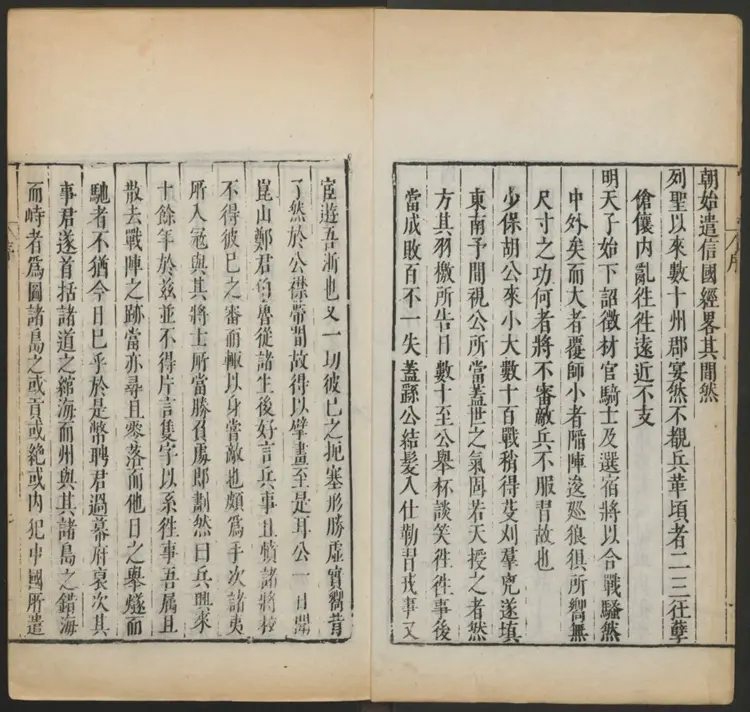 序
朝始遣信國經畧其間然
列聖以來數十州郡宴然不覩兵革頃者二三狂孽
傖儴内亂徃徃遠近不支
明天子始下詔徵材官騎士及選宿將以合戰騷然
中外矣而大者覆師小者陷陣逡廵狼俱所嚮無
尺寸之功何者將不審敵兵不服習故也
少保胡公來小大數十百戰稍得芟刈羣兇遂填
東南予間視公所當蓋世之氣固若天授之者然
方其羽檄所告日數十至公舉杯談笑徃徃事後
當成敗百不一失蓋繇公結髪入仕勒習戎事又
宦遊吾浙也又一切彼巳之扼塞形勝虛實嚮背
了然於公襟帶間故得以擘畫至是耳公一日聞
崑山鄭君伯魯從諸生後好言兵事且憤諸將校
不得彼巳之審而輒以身嘗敵也頗爲手次諸夷
所入冦與其將士所當勝負處卽劃然曰兵興來
十餘年於兹並不得片言隻字以系徃事吾属且
散去戰陣之跡當亦尋且零落而他日之舉燧而
馳者不猶今日巳乎於是幣聘君過幕府裒次其
事君遂首括諸道之綰海而州與其諸島之錯海
而峙者爲圖諸島之或貢或絶或内犯中國所遣
序